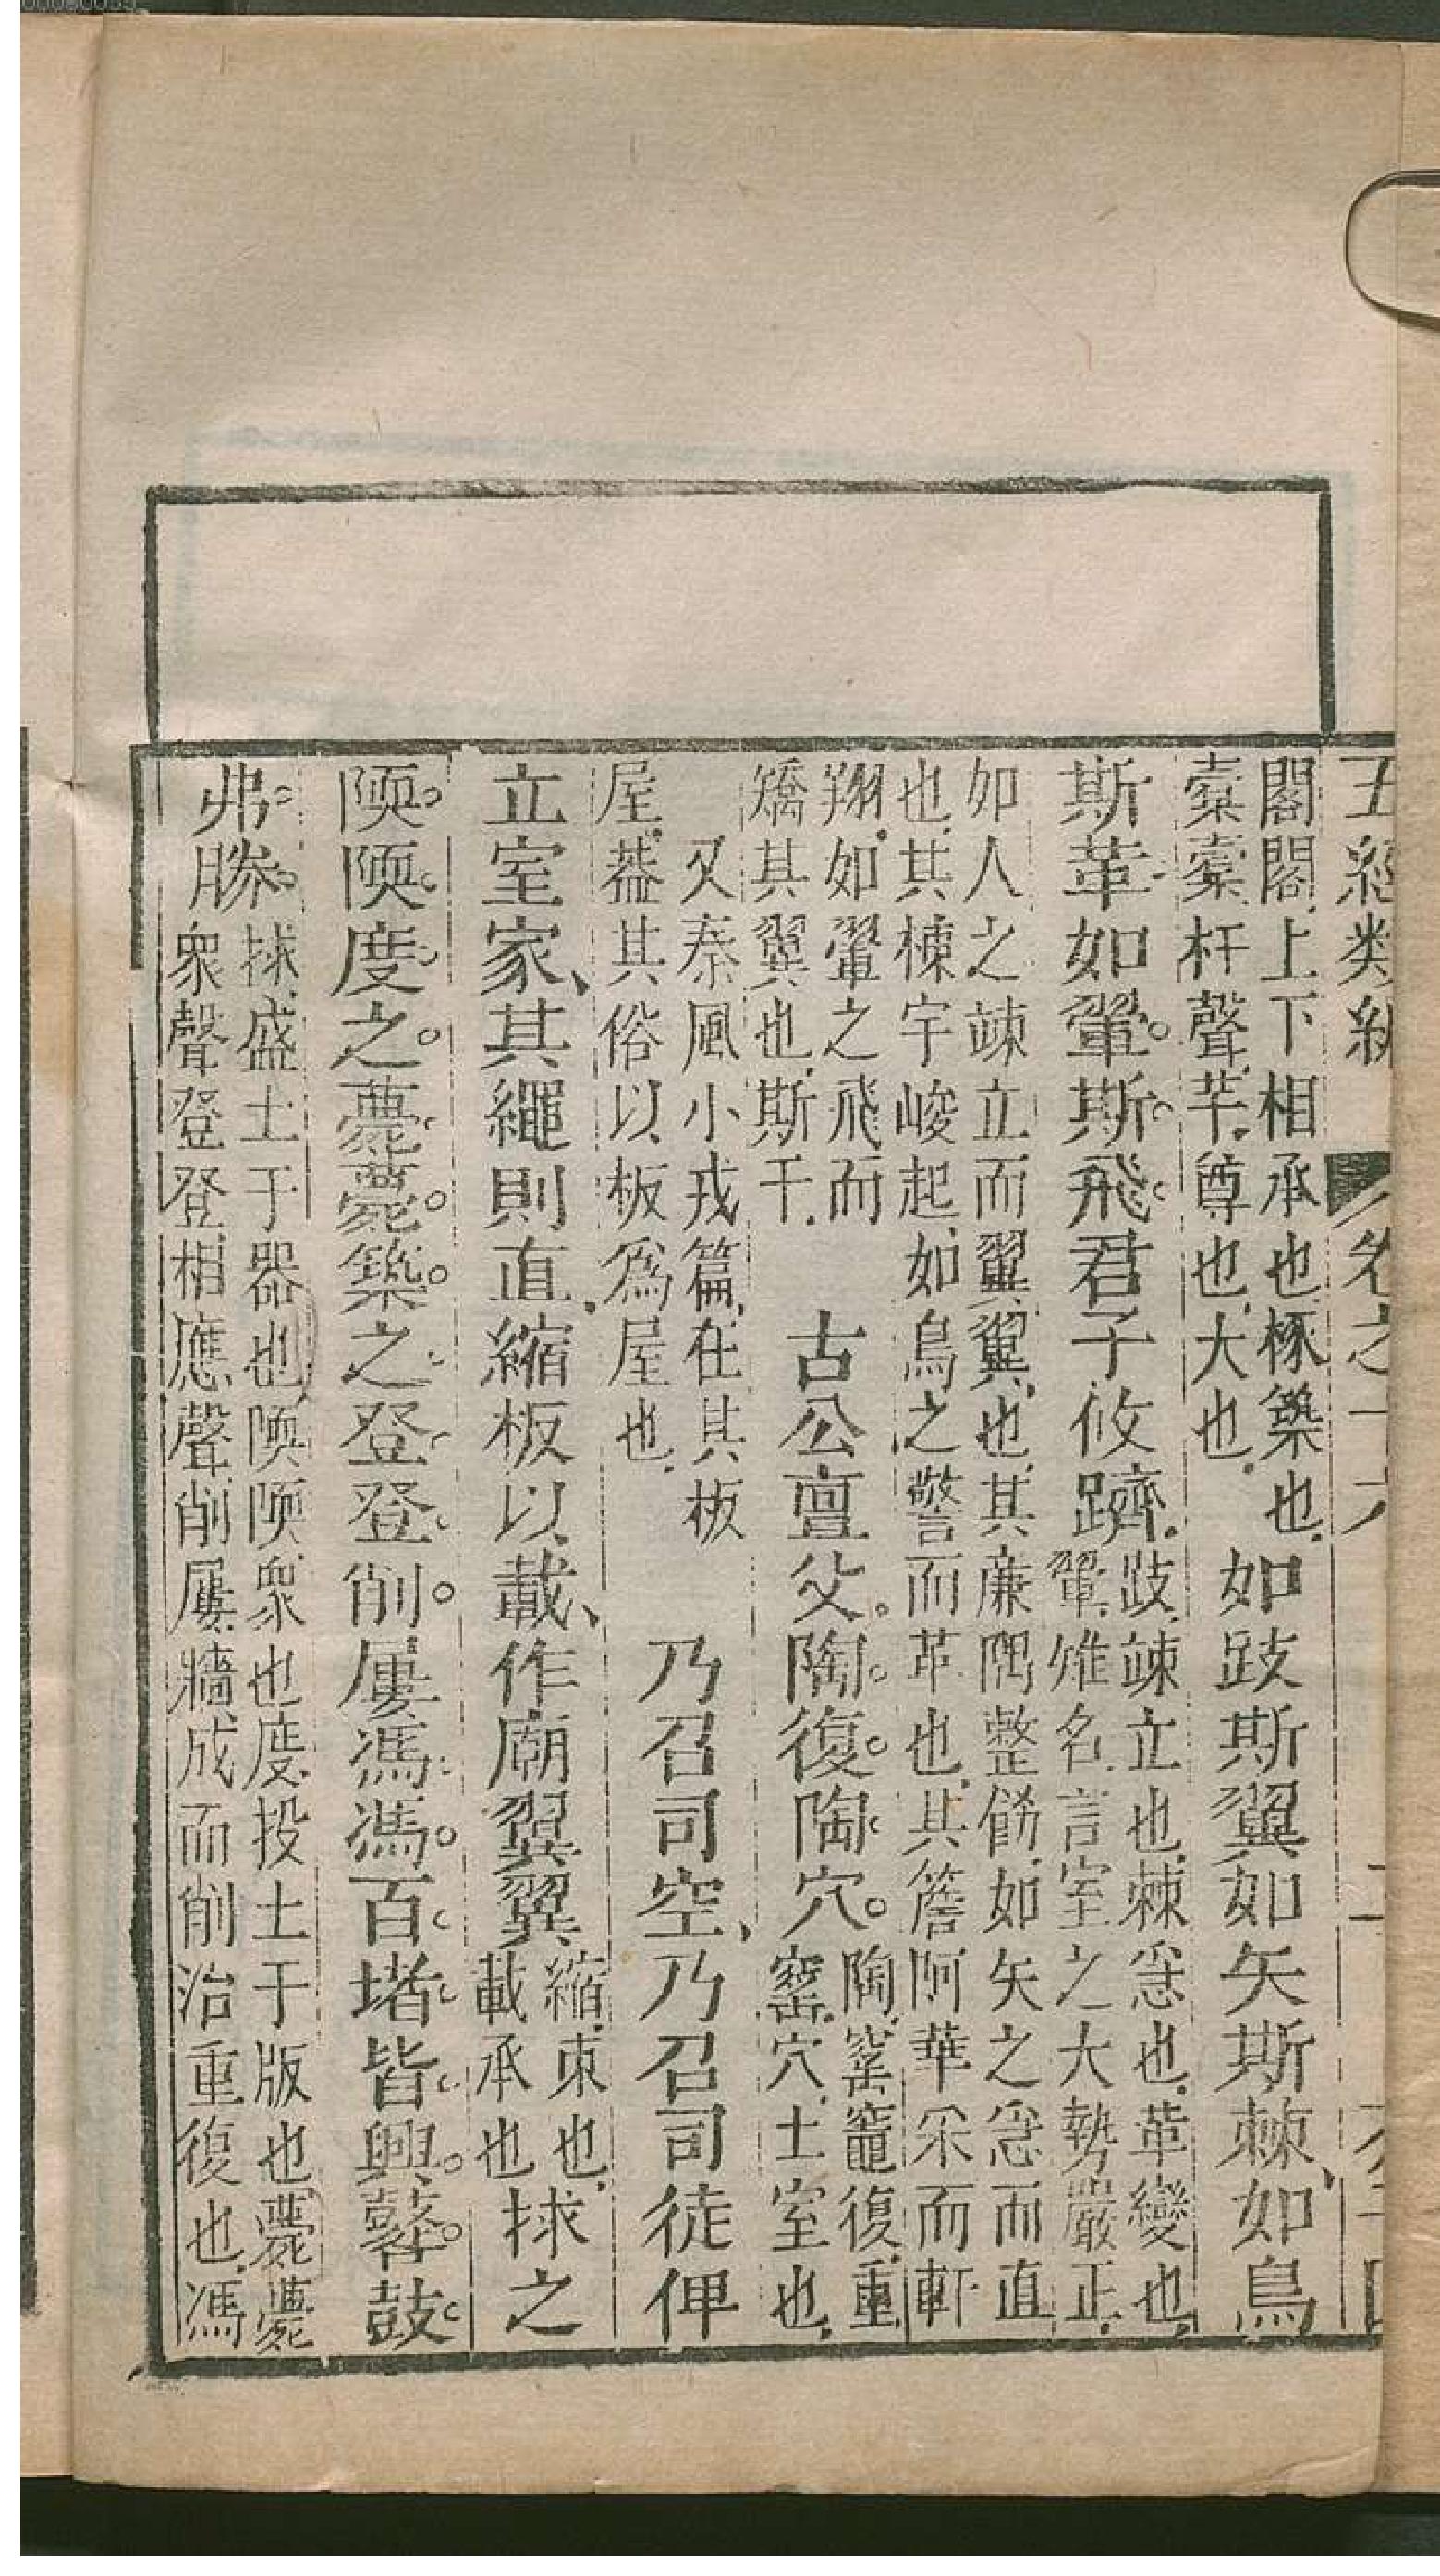 五經類編 卷之十六
閣閣上下相承也椓築也
橐橐杵聲芋尊也大也
如跂斯翼如矢斯棘如鳥
斯革如翬斯飛君子攸躋
跂竦立也棘急也革變也
翬雉名言室之大勢嚴正
如人之竦立而翼翼也其廉隅整飭如矢之急而直
也其棟宇峻起如鳥之警而革也其簷阿華采而軒
翔如翬之飛而
矯其翼也斯干
古公亶父陶復陶穴
陶窰竈復重
窰穴土室也
又秦風小戎篇在其板
屋葢其俗以板爲屋也
乃召司空乃召司徒俾
立室家其繩則直縮板以載作廟翼翼
縮束也
載承也
捄之
陾陾度之薨薨築之登登削屢馮馮百堵皆興鼛鼓
弗勝
捄盛土于器也陾陾衆也度投土于版也薨薨
衆聲登登相應聲削屢牆成而削治重復也馮